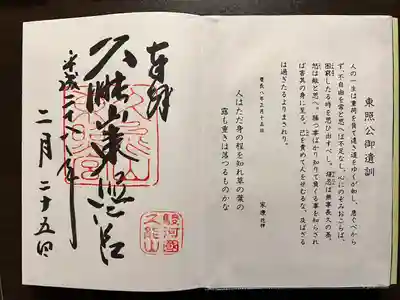 東照公御遺訓
人の一生は重荷を負て遠き道をゆくが如し、急ぐべから
ず、不自由を常と思へば不足なし、心にのぞみおこらば、
困窮したる時を思ひ出すべし。堪忍は無事長久の基、
怒は敵と思へ。勝つ事ばかり知りて負くる事を知らざれ
ば害其の身に至る。己を責めて人を責むるな。及ばざる
は過ぎたるよりまされり。
慶長八年正月十五日
家康花押
人はただ身の程を知れ草の葉の
露も重きは落つるものかな
奉拝
久能山東照宮
駿河國
久能山
平成
二月二十五日